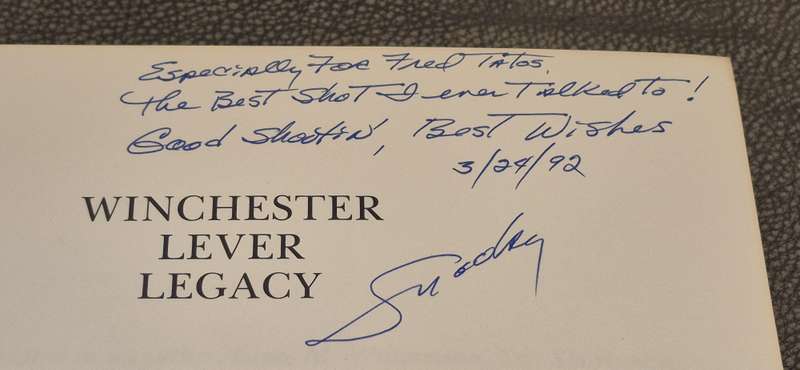 Especially For Fred Titos.
The Best Shot I ever Talked to!
Good Shootin', Best Wishes
3/24/92
WINCHESTER
LEVER
LEGACY
Snooky